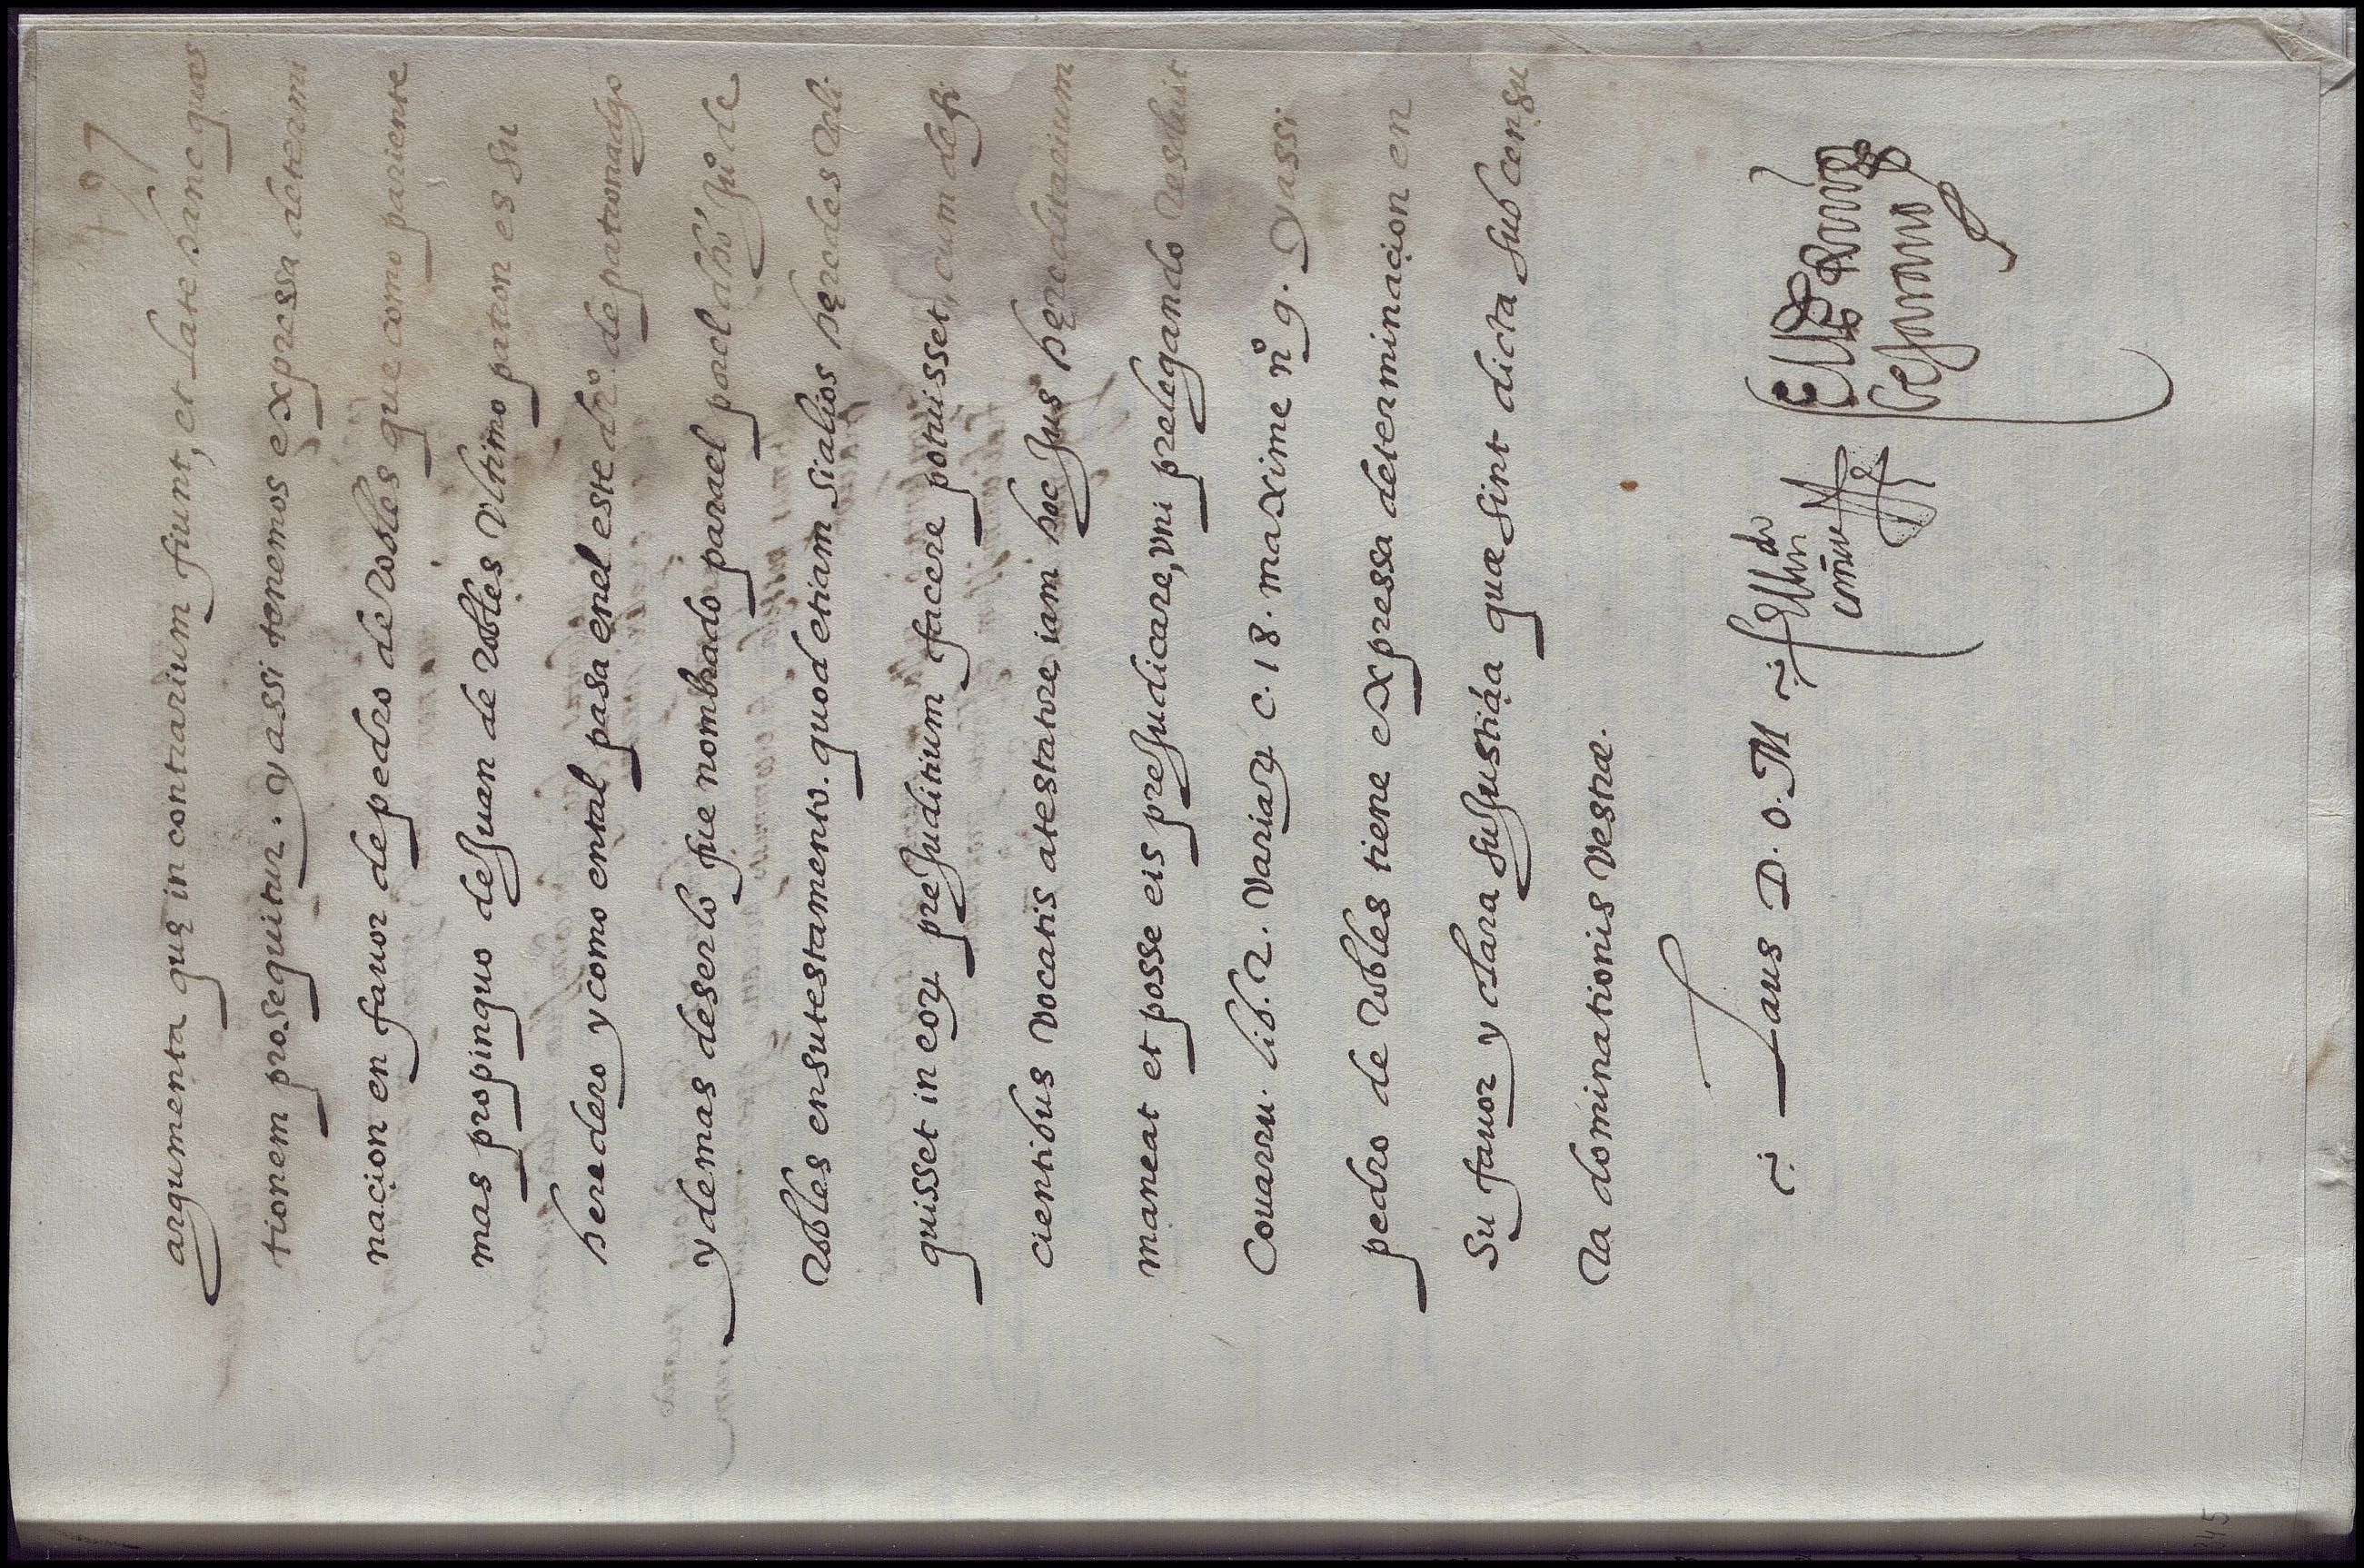 argumenta quę in contrarium fiunt, et late hanc ques
tionem prosequitur. y assi tenemos expressa determi
naçion en fauor de pedro de Robles que como pariente
mas propinquo de Juan de Robles Vltimo patron es su
heredero y como en tal pasa enel este drº. de patronadgo
y demas deserlo fue nombrado parael por el dhõ Juº de
Robles ensu testamento. quod etiam si alios hęredes Reli
quisset in eoꝝ preJuditium facere potuisset, cum defi
cientibus Vocatis a testatore iam hoc Jus hęreditarium
maneat et posse eis preJudicare, vni prelegando
Couarru. lib. 2. Variaꝝ c. 18. maxime nº 9. Y assi
pedro de Robles tiene expressa determinaçion en
su fauor y clara su Justiçia quæ sint dicta sub censu
ra dominationis Vestræ.
Laus D. O. M